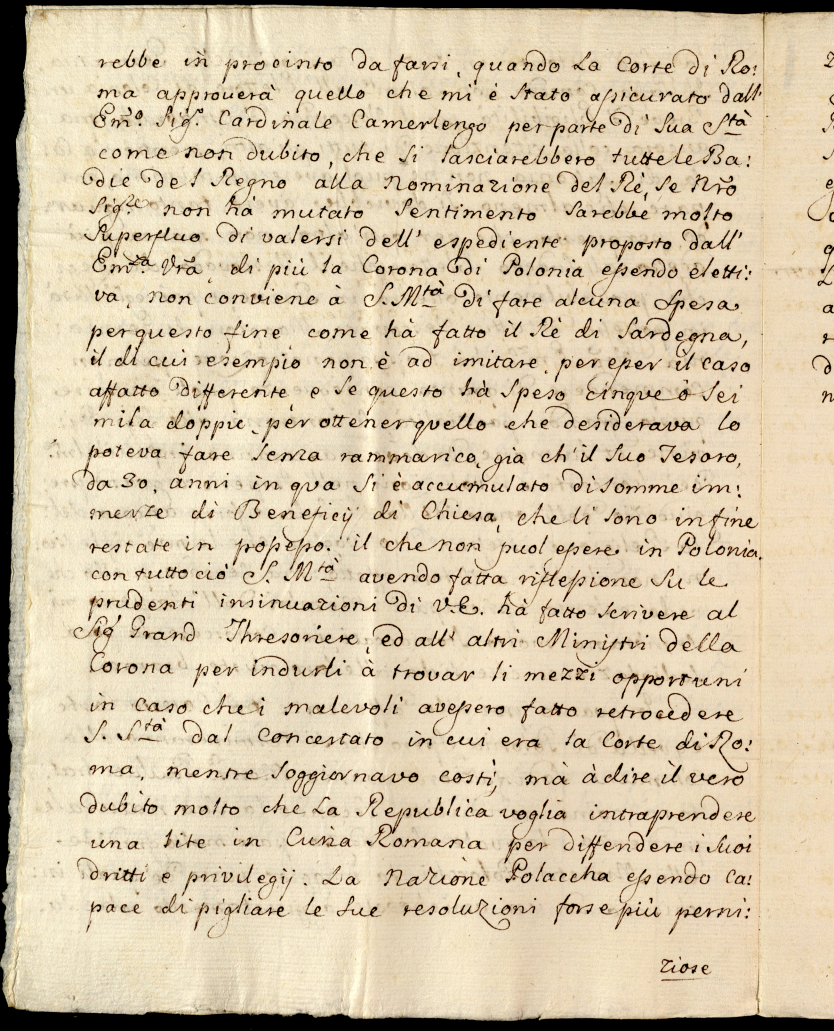 rebbe in procinto da farsi, quando La Corte di Ro:
ma approuerà quello che mi è stato assicurato dall'
Em.º Sig.r Cardinale Camerlengo per parte di Sua S.tà
come non dubito, che si lasciarebbero tutte le Ba:
die del Regno alla Nominazione del Rè, se Nrõ
Sig.re non hà mutato sentimento sarebbe molto
superfluo di valersi dell' espediente proposto dall'
Em.za Vrã, di più la Corona di Polonia essendo eletti:
va, non conviene à S. M.tà di fare alcuna spesa
per questo fine come hà fatto il Rè di Sardegna,
il di cui esempio non è ad imitare, per esser il caso
affatto differente e se questo hà speso cinque ò sei
mila doppie, per ottener quello che desiderava lo
poteva fare senza rammarico, gia ch'il suo Tesoro,
da 30. anni in qua si è accumulato di somme im:
menze di Beneficij di Chiesa, che li sono in fine
restate in possesso. il che non puol essere in Polonia.
con tutto ciò S. M.tà avendo fatta riflessione su le
prudenti insinuazioni di V.E. hà fatto scrivere al
Sig.r Grand Thresoriere, ed all' altri Ministri della
Corona per indurli à trovar li mezzi opportuni
in caso che i malevoli avessero fatto retrocedere
S. S.tà dal Concertato in cui era la Corte di Ro:
ma, mentre soggiornavo costì, mà à dire il vero
dubito molto che La Republica voglia intraprendere
una lite in Curia Romana per diffendere i suoi
dritti e privilegij. La Nazione Polaccha essendo ca:
pace di pigliare le sue resoluzioni forse più perni:
ziose